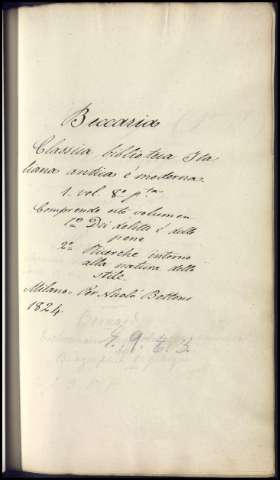 Beccaria
Classica biblioteca Ita
liana antica é moderna.
1. vol. 8º pta
Comprende este volumen.
1º Dei delitti é delle
pene
2º Ricerche intorno
alla natura dello
stile.
Milano. Per Nicoló Bettoni
1824